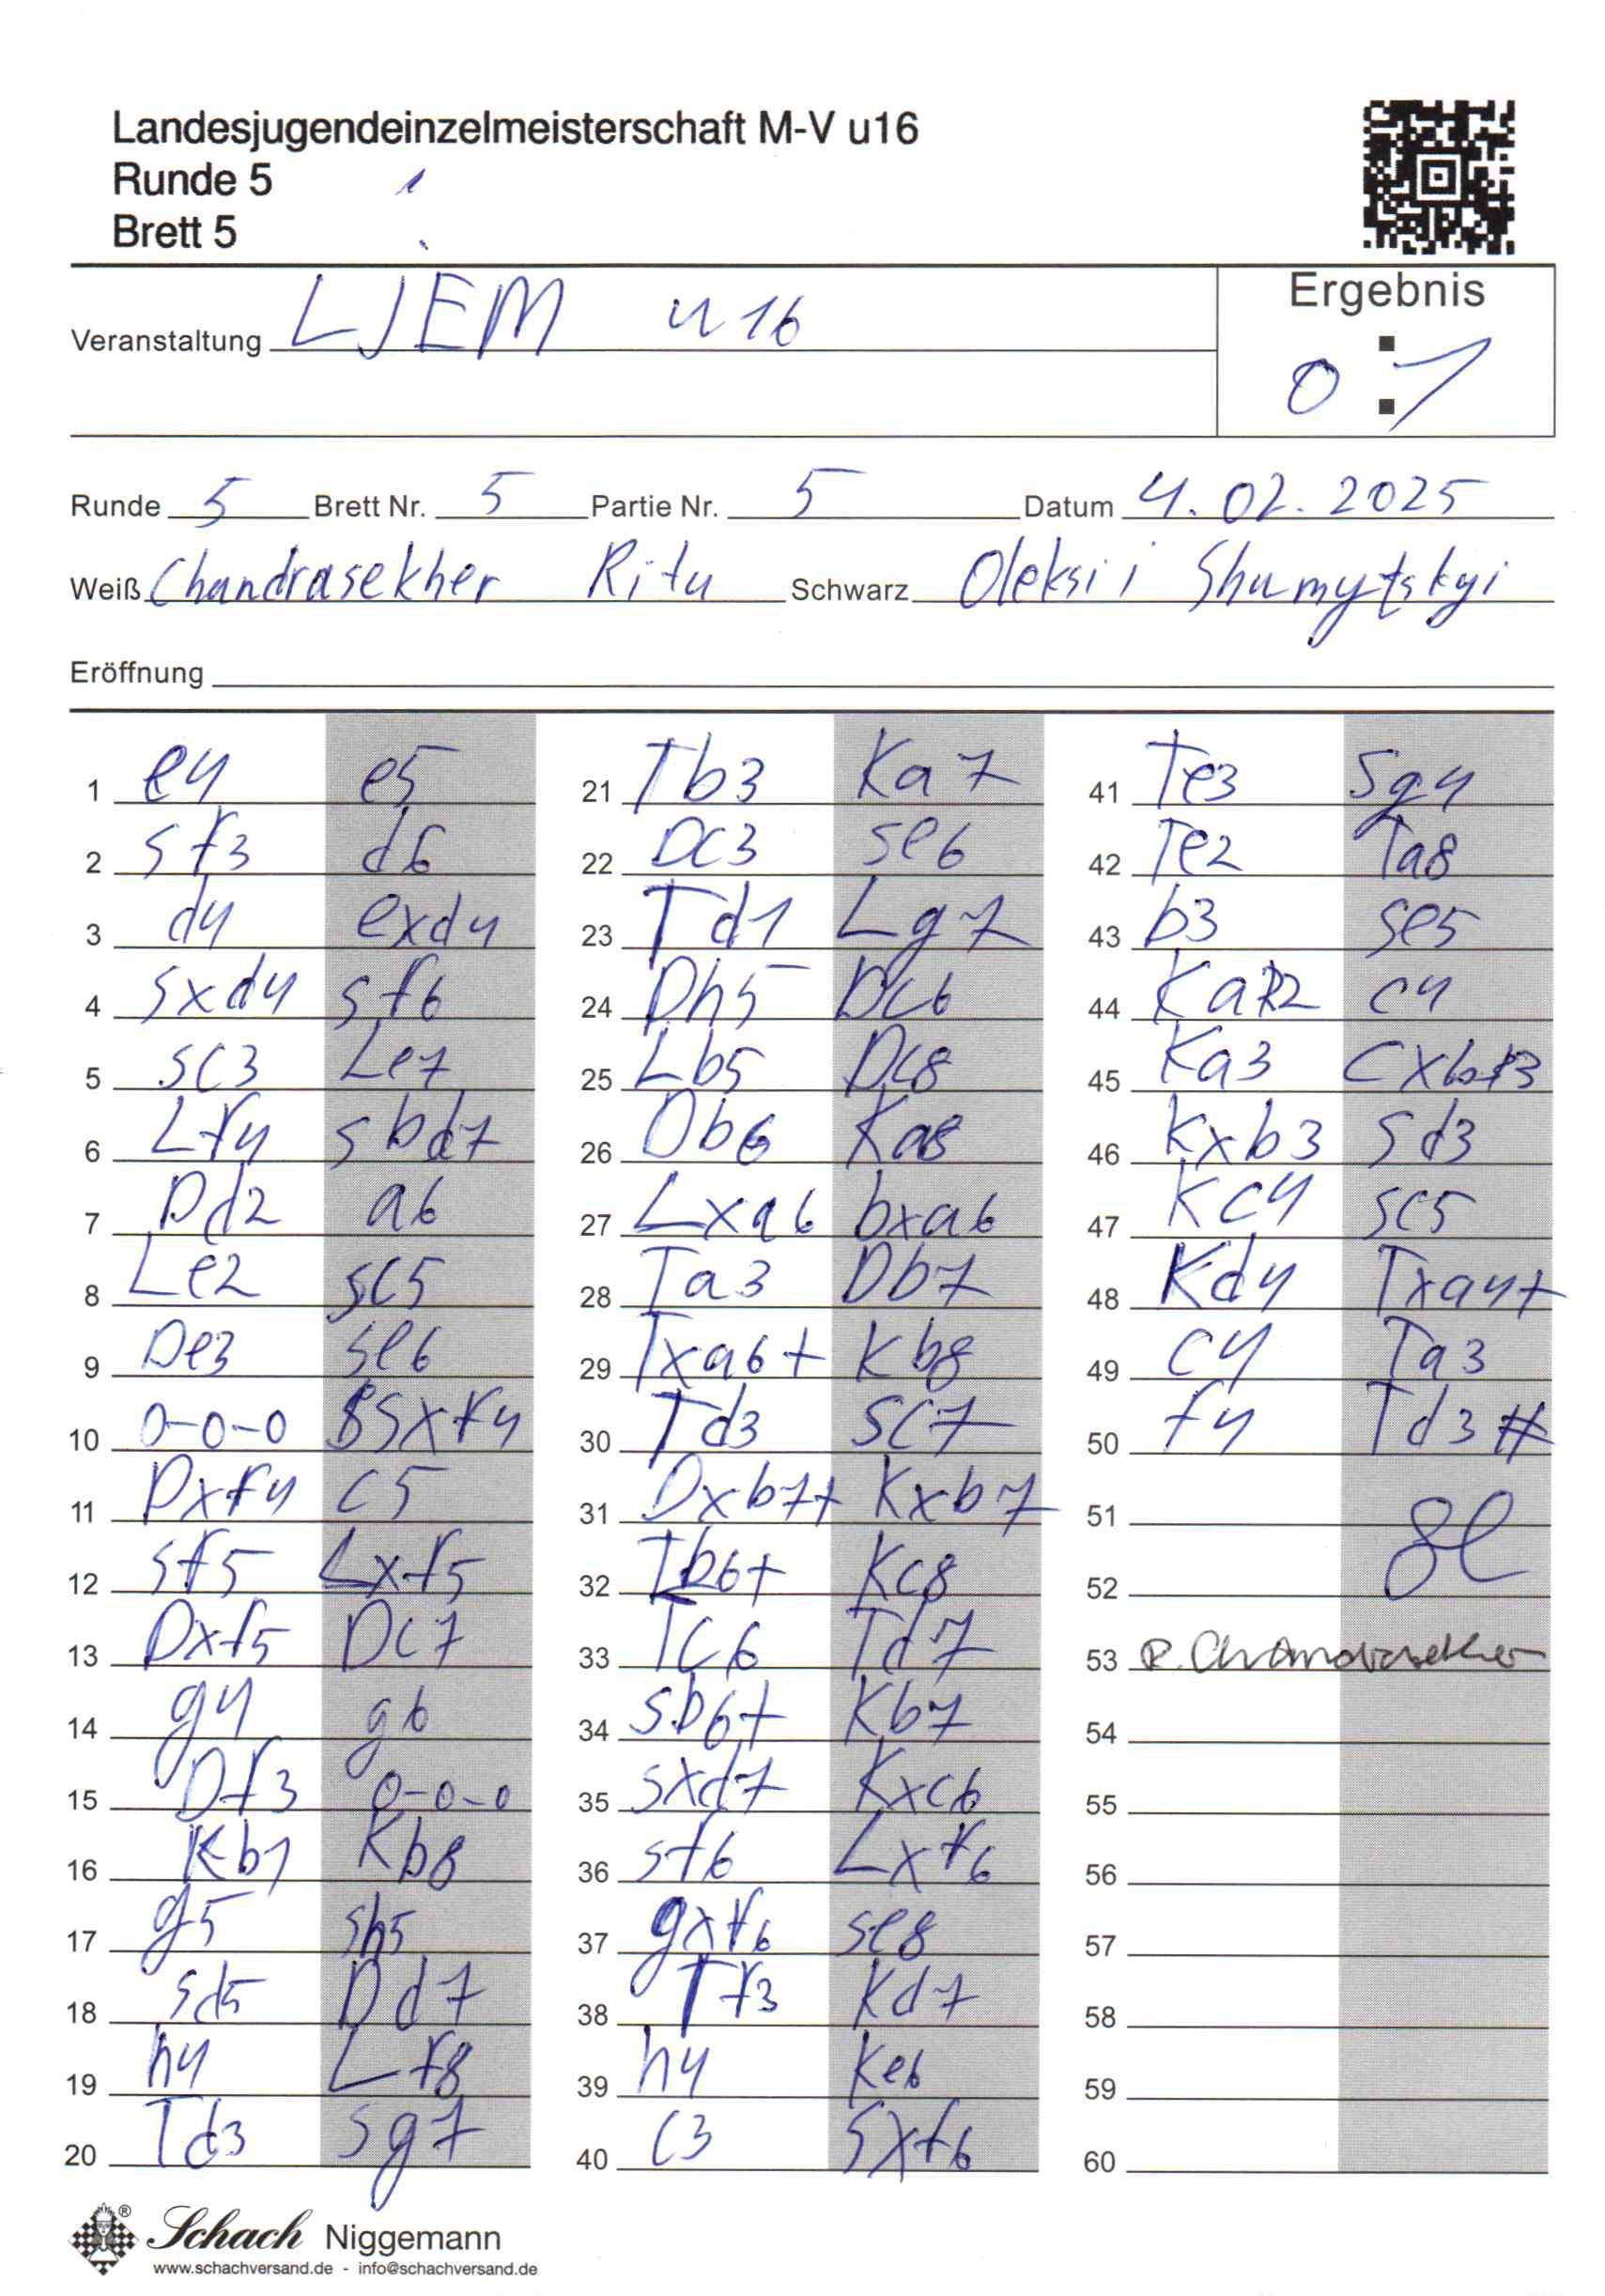 Landesjugendeinzelmeisterschaft M-V u16
Runde 5
Brett 5
Veranstaltung LJEM u16
Ergebnis
0 : 1
Runde 5 Brett Nr. 5 Partie Nr. 5 Datum 4.02.2025
Weiß Chandrasekher Ritu Schwarz Oleksii Shumytskyi
Eröffnung
1 e4 e5
2 Sf3 d6
3 d4 exd4
4 Sxd4 Sf6
5 Sc3 Le7
6 Lf4 Sbd7
7 Dd2 a6
8 Le2 Sc5
9 De3 Se6
10 0-0-0 Sxf4
11 Dxf4 c5
12 Sf5 Lxf5
13 Dxf5 Dc7
14 g4 g6
15 Df3 0-0-0
16 Kb1 Kb8
17 g5 Sh5
18 Sd5 Dd7
19 h4 Lf8
20 Td3 Sg7
21 Tb3 Ka7
22 Dc3 Se6
23 Td1 Lg7
24 Dh5 Dc6
25 Lb5 Dc8
26 Db6 Ka8
27 Lxa6 bxa6
28 Ta3 Db7
29 Txa6+ Kb8
30 Td3 Sc7
31 Dxb7+ Kxb7
32 Tb6+ Kc8
33 Tc6 Td7
34 Sb6+ Kb7
35 Sxd7 Kxc6
36 Sf6 Lxf6
37 gxf6 Se8
38 Tf3 Kd7
39 h4 Ke6
40 c3 Sxf6
41 Te3 Sg4
42 Te2 Ta8
43 b3 Se5
44 Ka2 c4
45 Ka3 cxb3
46 Kxb3 Sd3
47 Kc4 Sc5
48 Kd4 Txa4+
49 c4 Ta3
50 f4 Td3#
51
52
53 R. Chandrasekher
54
55
56
57
58
59
60
Schach Niggemann
www.schachversand.de - info@schachversand.de